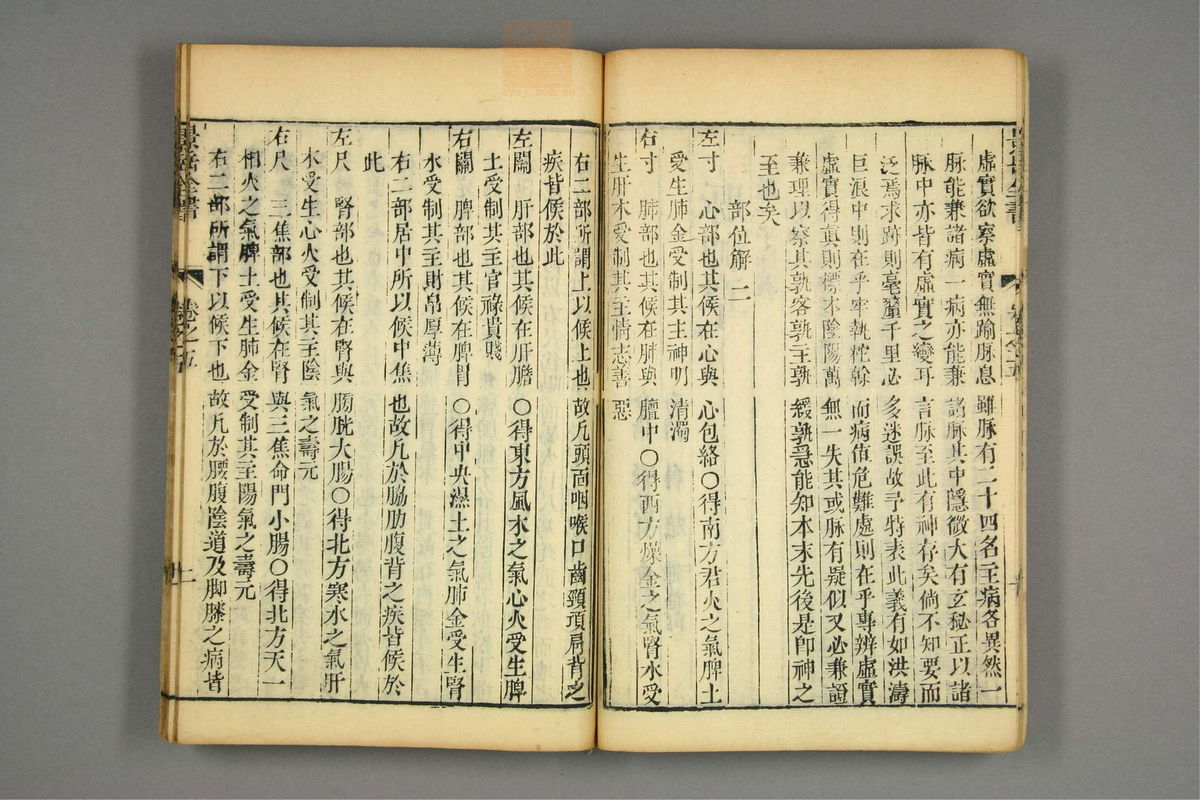 景岳全書
虛實欲察虛實無踰脉息雖脉有二十四名主病各異然一
脉能兼諸病一病亦能兼諸脉其中隱微大有玄秘正以諸
脉中亦皆有虛實之變耳言脉至此有神存矣倘不知要而
泛焉求跡則毫釐千里必多迷誤故予特表此義有如洪濤
巨浪中則在乎牢執柁幹而病值危難處則在乎專辨虛實
虛實得真則標本陰陽萬無一失其或脉有疑似又必兼證
兼理以察其孰客孰主孰緩孰急能知本末先後是即神之
至也矣
部位解 二
左寸 心部也其候在心與心包絡〇得南方君火之氣脾土
受生肺金受制其主神明清濁
右寸 肺部也其候在肺與膻中〇得西方燥金之氣腎水受
生肝木受制其主情志善惡
右二部所謂上以候上也故凡頭面咽喉口齒頸項肩背之
疾皆候於此
左關 肝部也其候在肝膽〇得東方風木之氣心火受生脾
土受制其主官祿貴賤
右關 脾部也其候在脾胃〇得中央濕土之氣肺金受生腎
水受制其主財帛厚薄
右二部居中所以候中焦也故凡於脇肋腹背之疾皆候於
此
左尺 腎部也其候在腎與膀胱大腸〇得北方寒水之氣肝
木受生心火受制其主陰氣之壽元
右尺 三焦部也其候在腎與三焦命門小腸〇得北方天一
相火之氣脾土受生肺金受制其主陽氣之壽元
右二部所謂下以候下也故凡於腰腹陰道及脚膝之病皆
景岳全書
卷之五
十一